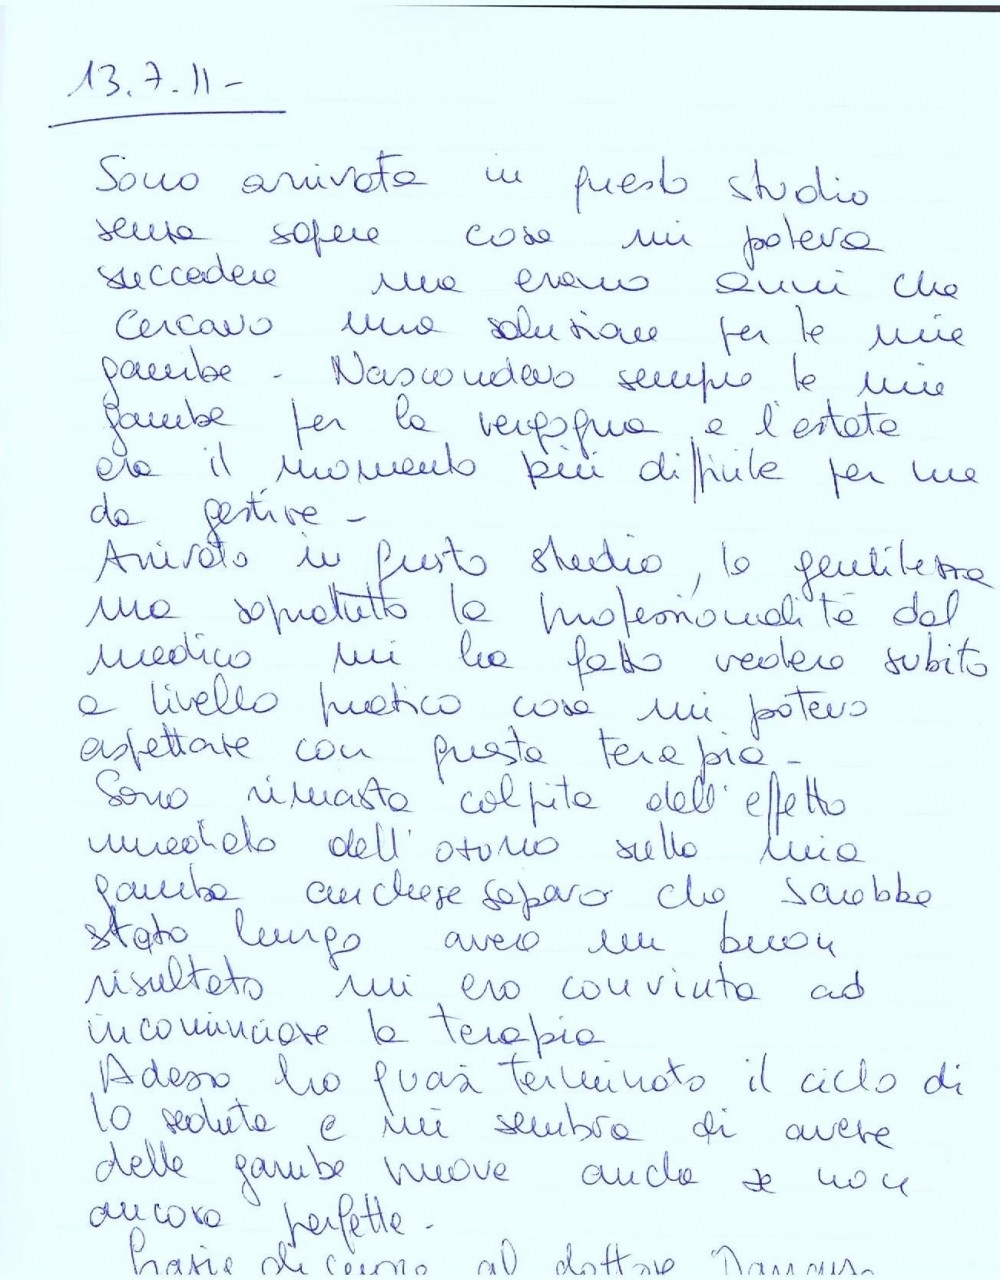 13.7.11-
Sono arrivata in questo studio
senza sapere cosa mi poteva
succedere ma erano anni che
cercavo una soluzione per le mie
gambe - Nascondevo sempre le mie
gambe per la vergogna e l'estate
era il momento più difficile per me
da gestire -
Arrivato in questo studio, la gentilezza
ma sopratutto la professionalità del
medico mi ha fatto vedere subito
a livello pratico cosa mi potevo
aspettare con questa terapia -
Sono rimasta colpita dell'effetto
immediato dell'ozono sulla mia
gamba anche se sapevo che sarebbe
stato lungo avere un buon
risultato mi ero convinta ad
incominciare la terapia
Adesso ho quasi terminato il ciclo di
10 sedute e mi sembra di avere
delle gambe nuove anche se non
ancora perfette -
Grazie di cuore al dottore